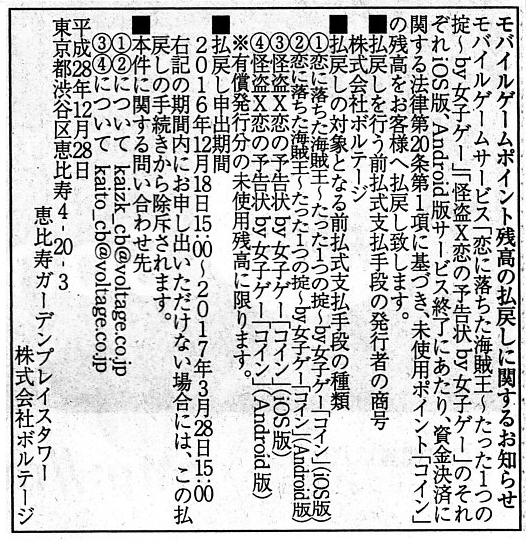 モバイルゲームポイント残高の払戻しに関するお知らせ
モバイルゲームサービス「恋に落ちた海賊王～たった1つの
掟～by女子ゲー」「怪盗X恋の予告状by女子ゲー」のそれ
ぞれiOS版、Android版サービス終了にあたり、資金決済に
関する法律第20条第1項に基づき、未使用ポイント「コイン」
の残高をお客様へ払戻し致します。
■払戻しを行う前払式支払手段の発行者の商号
株式会社ボルテージ
■払戻しの対象となる前払式支払手段の種類
①恋に落ちた海賊王～たった1つの掟～by女子ゲー「コイン」(iOS版)
②恋に落ちた海賊王～たった1つの掟～by女子ゲー「コイン」(Android版)
③怪盗X恋の予告状by女子ゲー「コイン」(iOS版)
④怪盗X恋の予告状by女子ゲー「コイン」(Android版)
※有償発行分の未使用残高に限ります。
■払戻し申出期間
2016年12月18日15:00～2017年3月28日15:00
右記の期間内にお申し出いただけない場合には、この払
戻しの手続きから除斥されます。
■本件に関する問い合わせ先
①②について kaizk_cb@voltage.co.jp
③④について kaito_cb@voltage.co.jp
平成28年12月28日
東京都渋谷区恵比寿4-20-3
恵比寿ガーデンプレイスタワー
株式会社ボルテージ